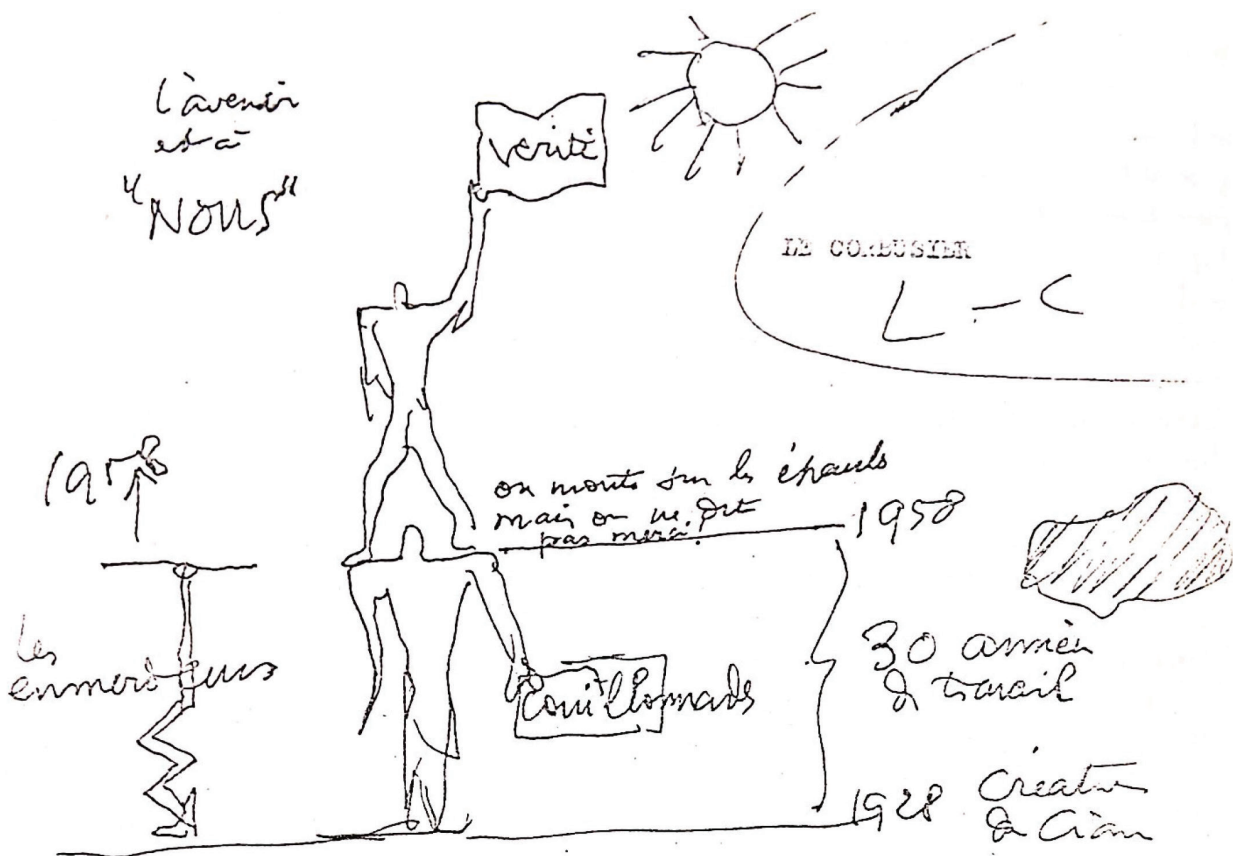 l'avenir
est à
"NOUS"
vérité
LE CORBUSIER
L-C
on monte sur les épaules
mais on ne dit
pas merci.
1958
les
enmerdeurs
couillonnades
30 années
de travail
1928
création
de Ciam